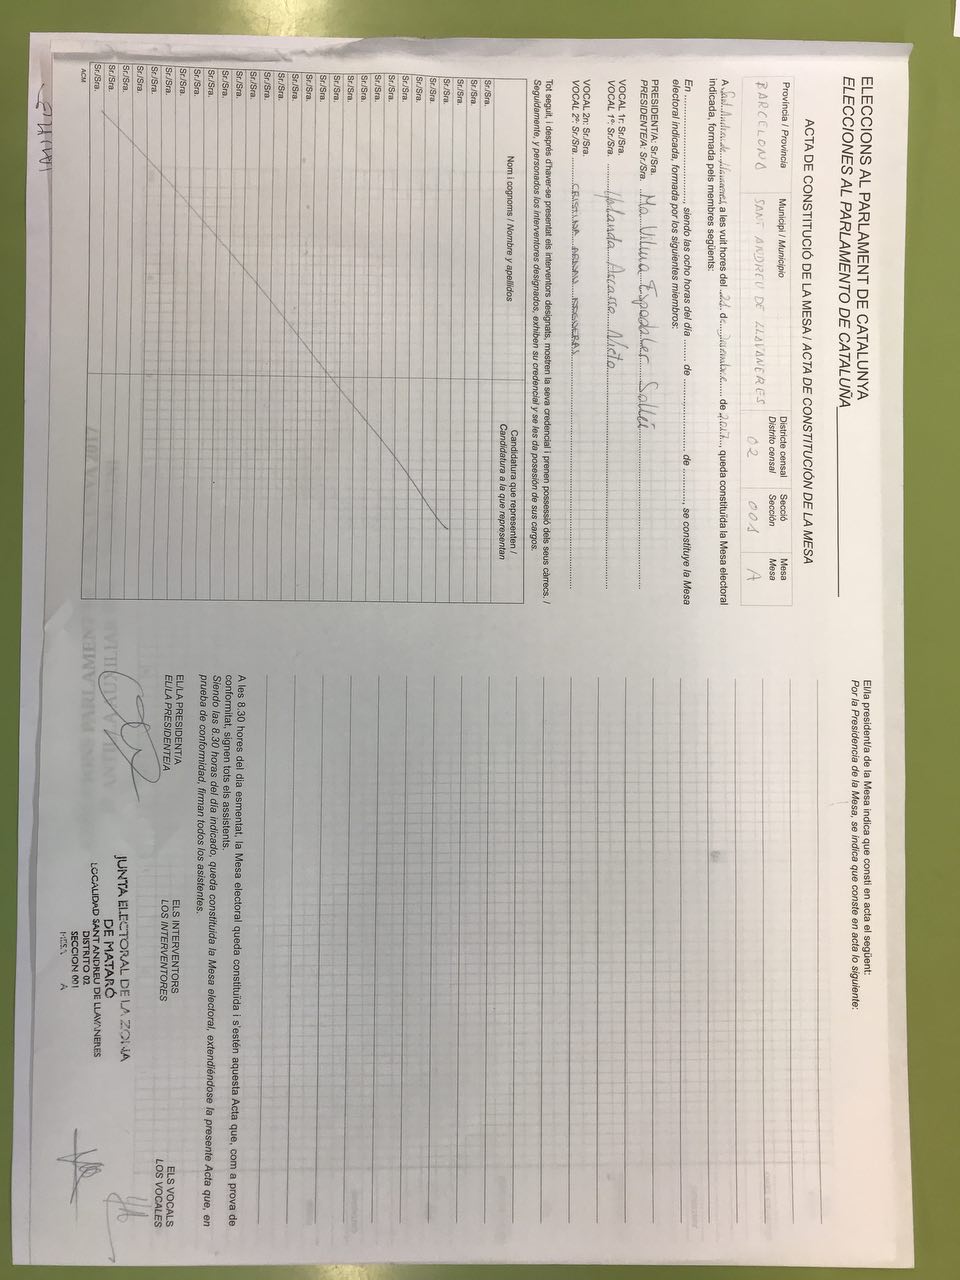 ELECCIONS AL PARLAMENT DE CATALUNYA
ELECCIONES AL PARLAMENTO DE CATALUÑA
ACTA DE CONSTITUCIÓ DE LA MESA / ACTA DE CONSTITUCIÓN DE LA MESA
Província / Provincia
Municipi / Municipio
Districte censal
Distrito censal
Secció
Sección
Mesa
Mesa
BARCELONA
SANT ANDREU DE LLAVANERES
02
001
A
A Sant Andreu de Llavaneres, a les vuit hores del 21 de desembre de 2017, queda constituïda la Mesa electoral
indicada, formada pels membres següents:
En ..............., siendo las ocho horas del día ........ de ............... de ..........., se constituye la Mesa
electoral indicada, formada por los siguientes miembros:
PRESIDENT/A: Sr./Sra.
PRESIDENTE/A: Sr./Sra. Ma Vilma Espadaler
VOCAL 1r: Sr./Sra.
VOCAL 1º: Sr./Sra. Yolanda
VOCAL 2n: Sr./Sra.
VOCAL 2º: Sr./Sra. CRISTINA
Tot seguit, i després d'haver-se presentat els interventors designats, mostren la seva credencial i prenen possessió dels seus càrrecs. /
Seguidamente, y personados los interventores designados, exhiben su credencial y se les da posesión de sus cargos.
Nom i cognoms / Nombre y apellidos
Candidatura que representen /
Candidatura a la que representan
Sr./Sra.
Sr./Sra.
Sr./Sra.
Sr./Sra.
Sr./Sra.
Sr./Sra.
Sr./Sra.
Sr./Sra.
Sr./Sra.
Sr./Sra.
Sr./Sra.
Sr./Sra.
Sr./Sra.
Sr./Sra.
Sr./Sra.
Sr./Sra.
Sr./Sra.
Sr./Sra.
Sr./Sra.
Sr./Sra.
Sr./Sra.
Sr./Sra.
Sr./Sra.
Sr./Sra.
Sr./Sra.
Sr./Sra.
Sr./Sra.
Sr./Sra.
ACM
El/la president/a de la Mesa indica que consti en acta el següent:
Por la Presidencia de la Mesa, se indica que conste en acta lo siguiente:
A les 8.30 hores del dia esmentat, la Mesa electoral queda constituïda i s'estén aquesta Acta que, com a prova de
conformitat, signen tots els assistents.
Siendo las 8.30 horas del día indicado, queda constituida la Mesa electoral, extendiéndose la presente Acta que, en
prueba de conformidad, firman todos los asistentes.
EL/LA PRESIDENT/A
EL/LA PRESIDENTE/A
ELS INTERVENTORS
LOS INTERVENTORES
ELS VOCALS
LOS VOCALES
JUNTA ELECTORAL DE LA ZONA
DE MATARÓ
LOCALIDAD SANT ANDREU DE LLAVANERES
DISTRITO 02
SECCION 001
MESA A